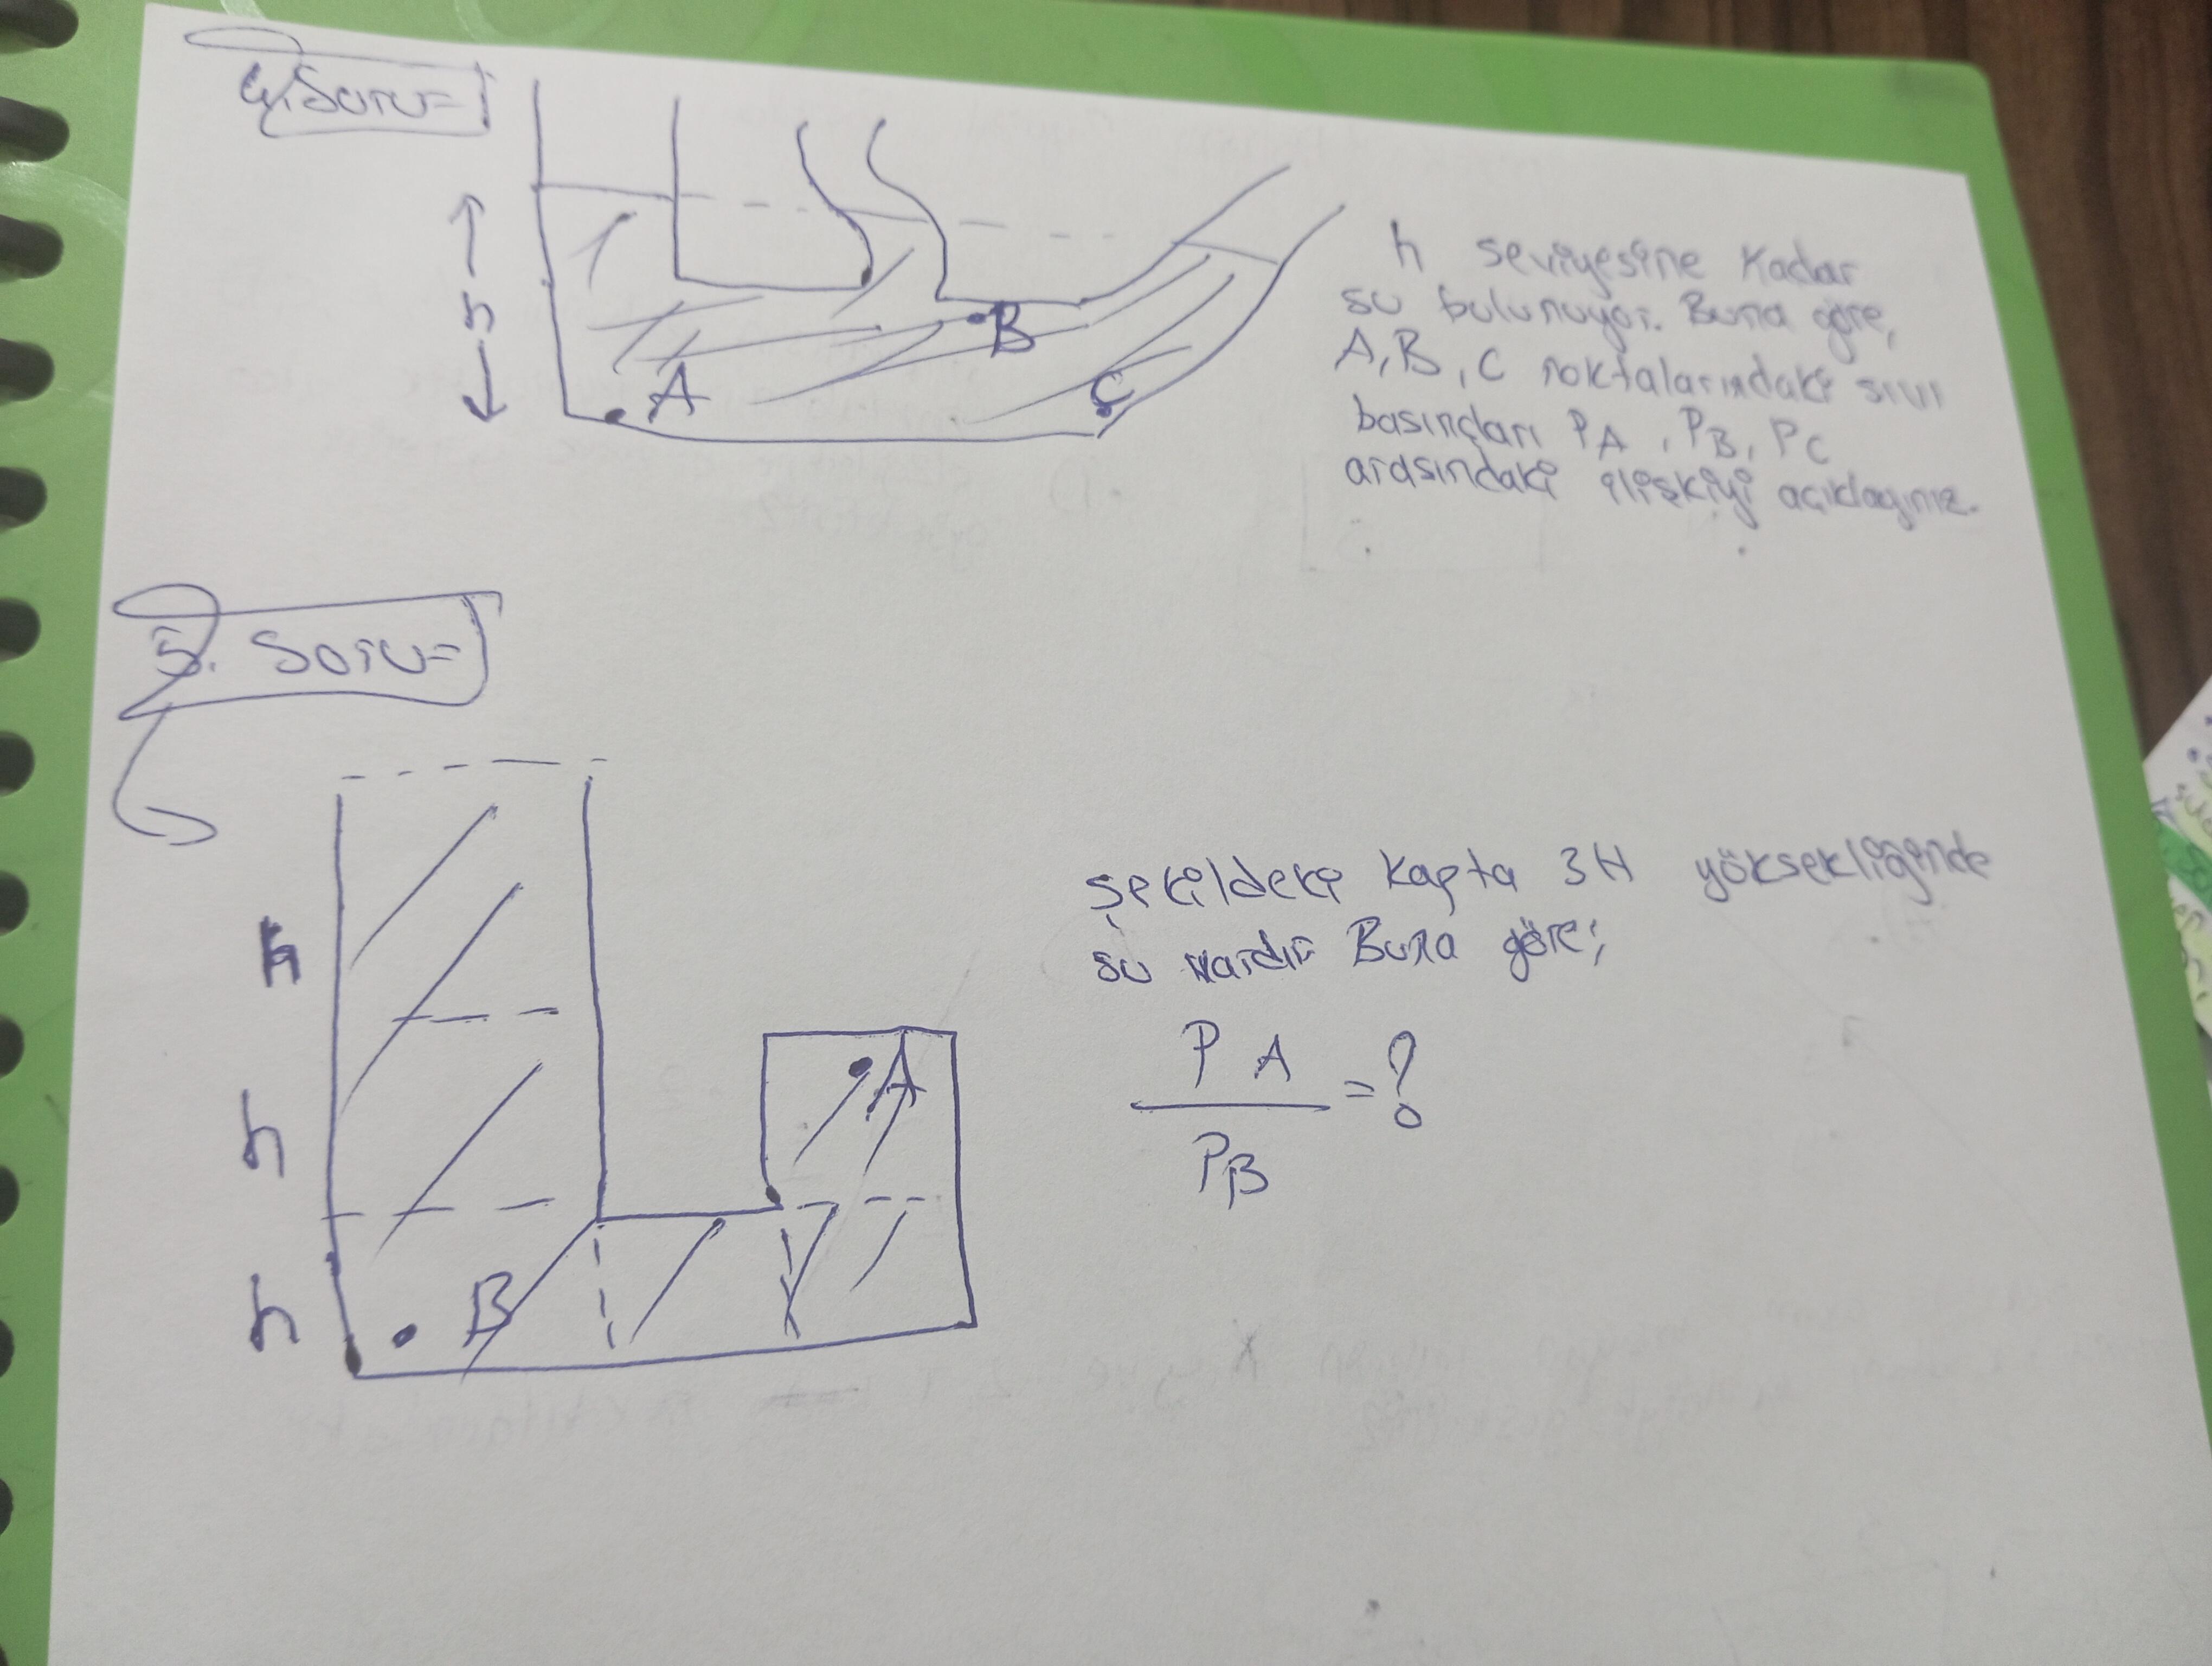 4. Soru=
h
A
B
C
h seviyesine Kadar
su bulunuyor. Buna göre,
A, B, C noktalarındaki sıvı
basınçları PA, PB, PC
arasındaki ilişkiyi açıklayınız.
5. Soru=
h
h
h
B
A
Şekildeki Kapta 3H yüksekliğinde
su vardır Buna göre;
PA
PB
=?